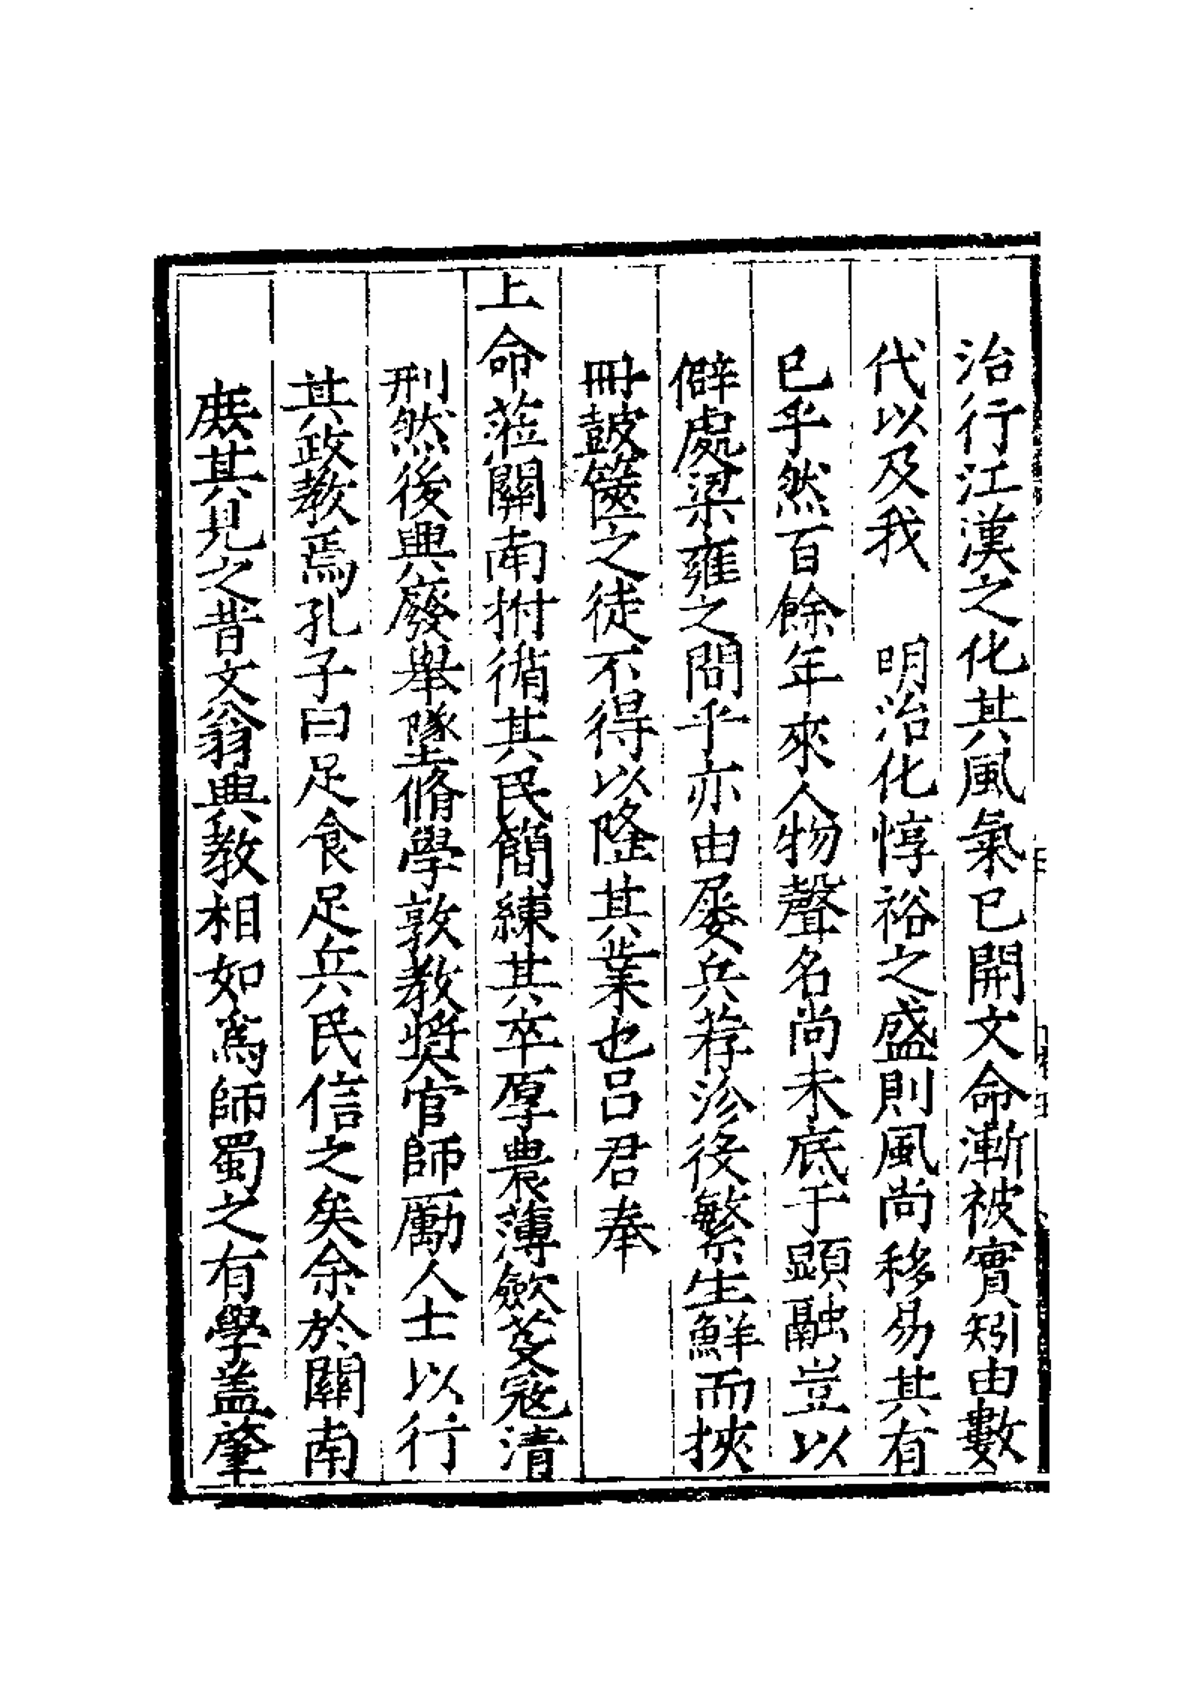 治行江漢之化其風氣已開文命漸被實矧由數
代以及我　明治化惇裕之盛則風尚移易其有
已乎然百餘年來人物聲名尚未底于顯融豈以
僻處梁雍之間乎亦由屢兵荐沴役繁生鮮而挾
冊鼓篋之徒不得以隆其業也呂君奉
上命蒞關南拊循其民簡練其卒厚農薄歛芟寇清
刑然後興廢舉墜脩學敦教奬官師勵人士以行
其政教焉孔子曰足食足兵民信之矣余於關南
庶其見之昔文翁興教相如爲師蜀之有學盖肇